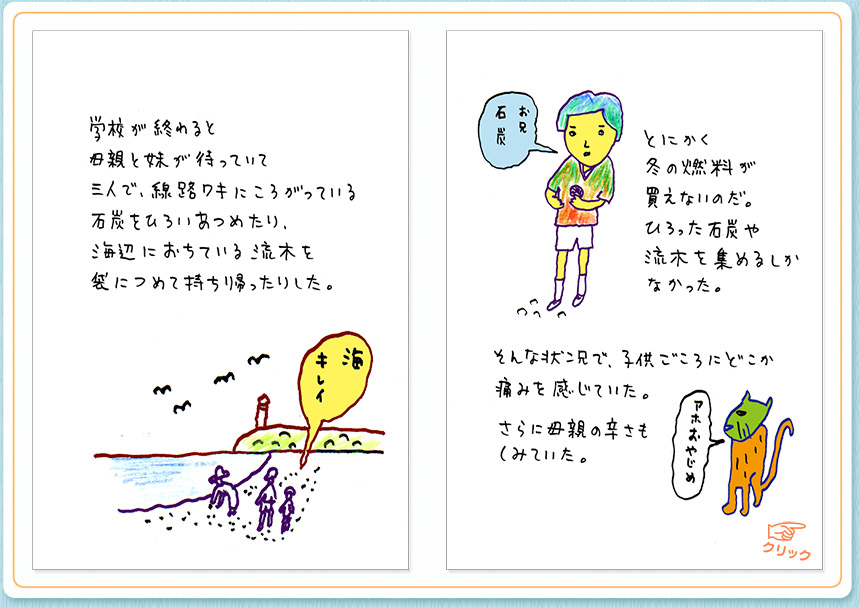 学校が終れると
母親と妹が待っていて
三人で、線路ワキにころがっている
石炭をひろいあつめたり、
海辺におちている流木を
袋につめて持ち帰ったりした。
海
キレイ
お兄
石炭
とにかく
冬の燃料が
買えないのだ。
ひろった石炭や
流木を集めるしか
なかった。
そんな状況で、子供ごころにどこか
痛みを感じていた。
さらに母親の辛さも
しみていた。
アホおやじめ
クリック